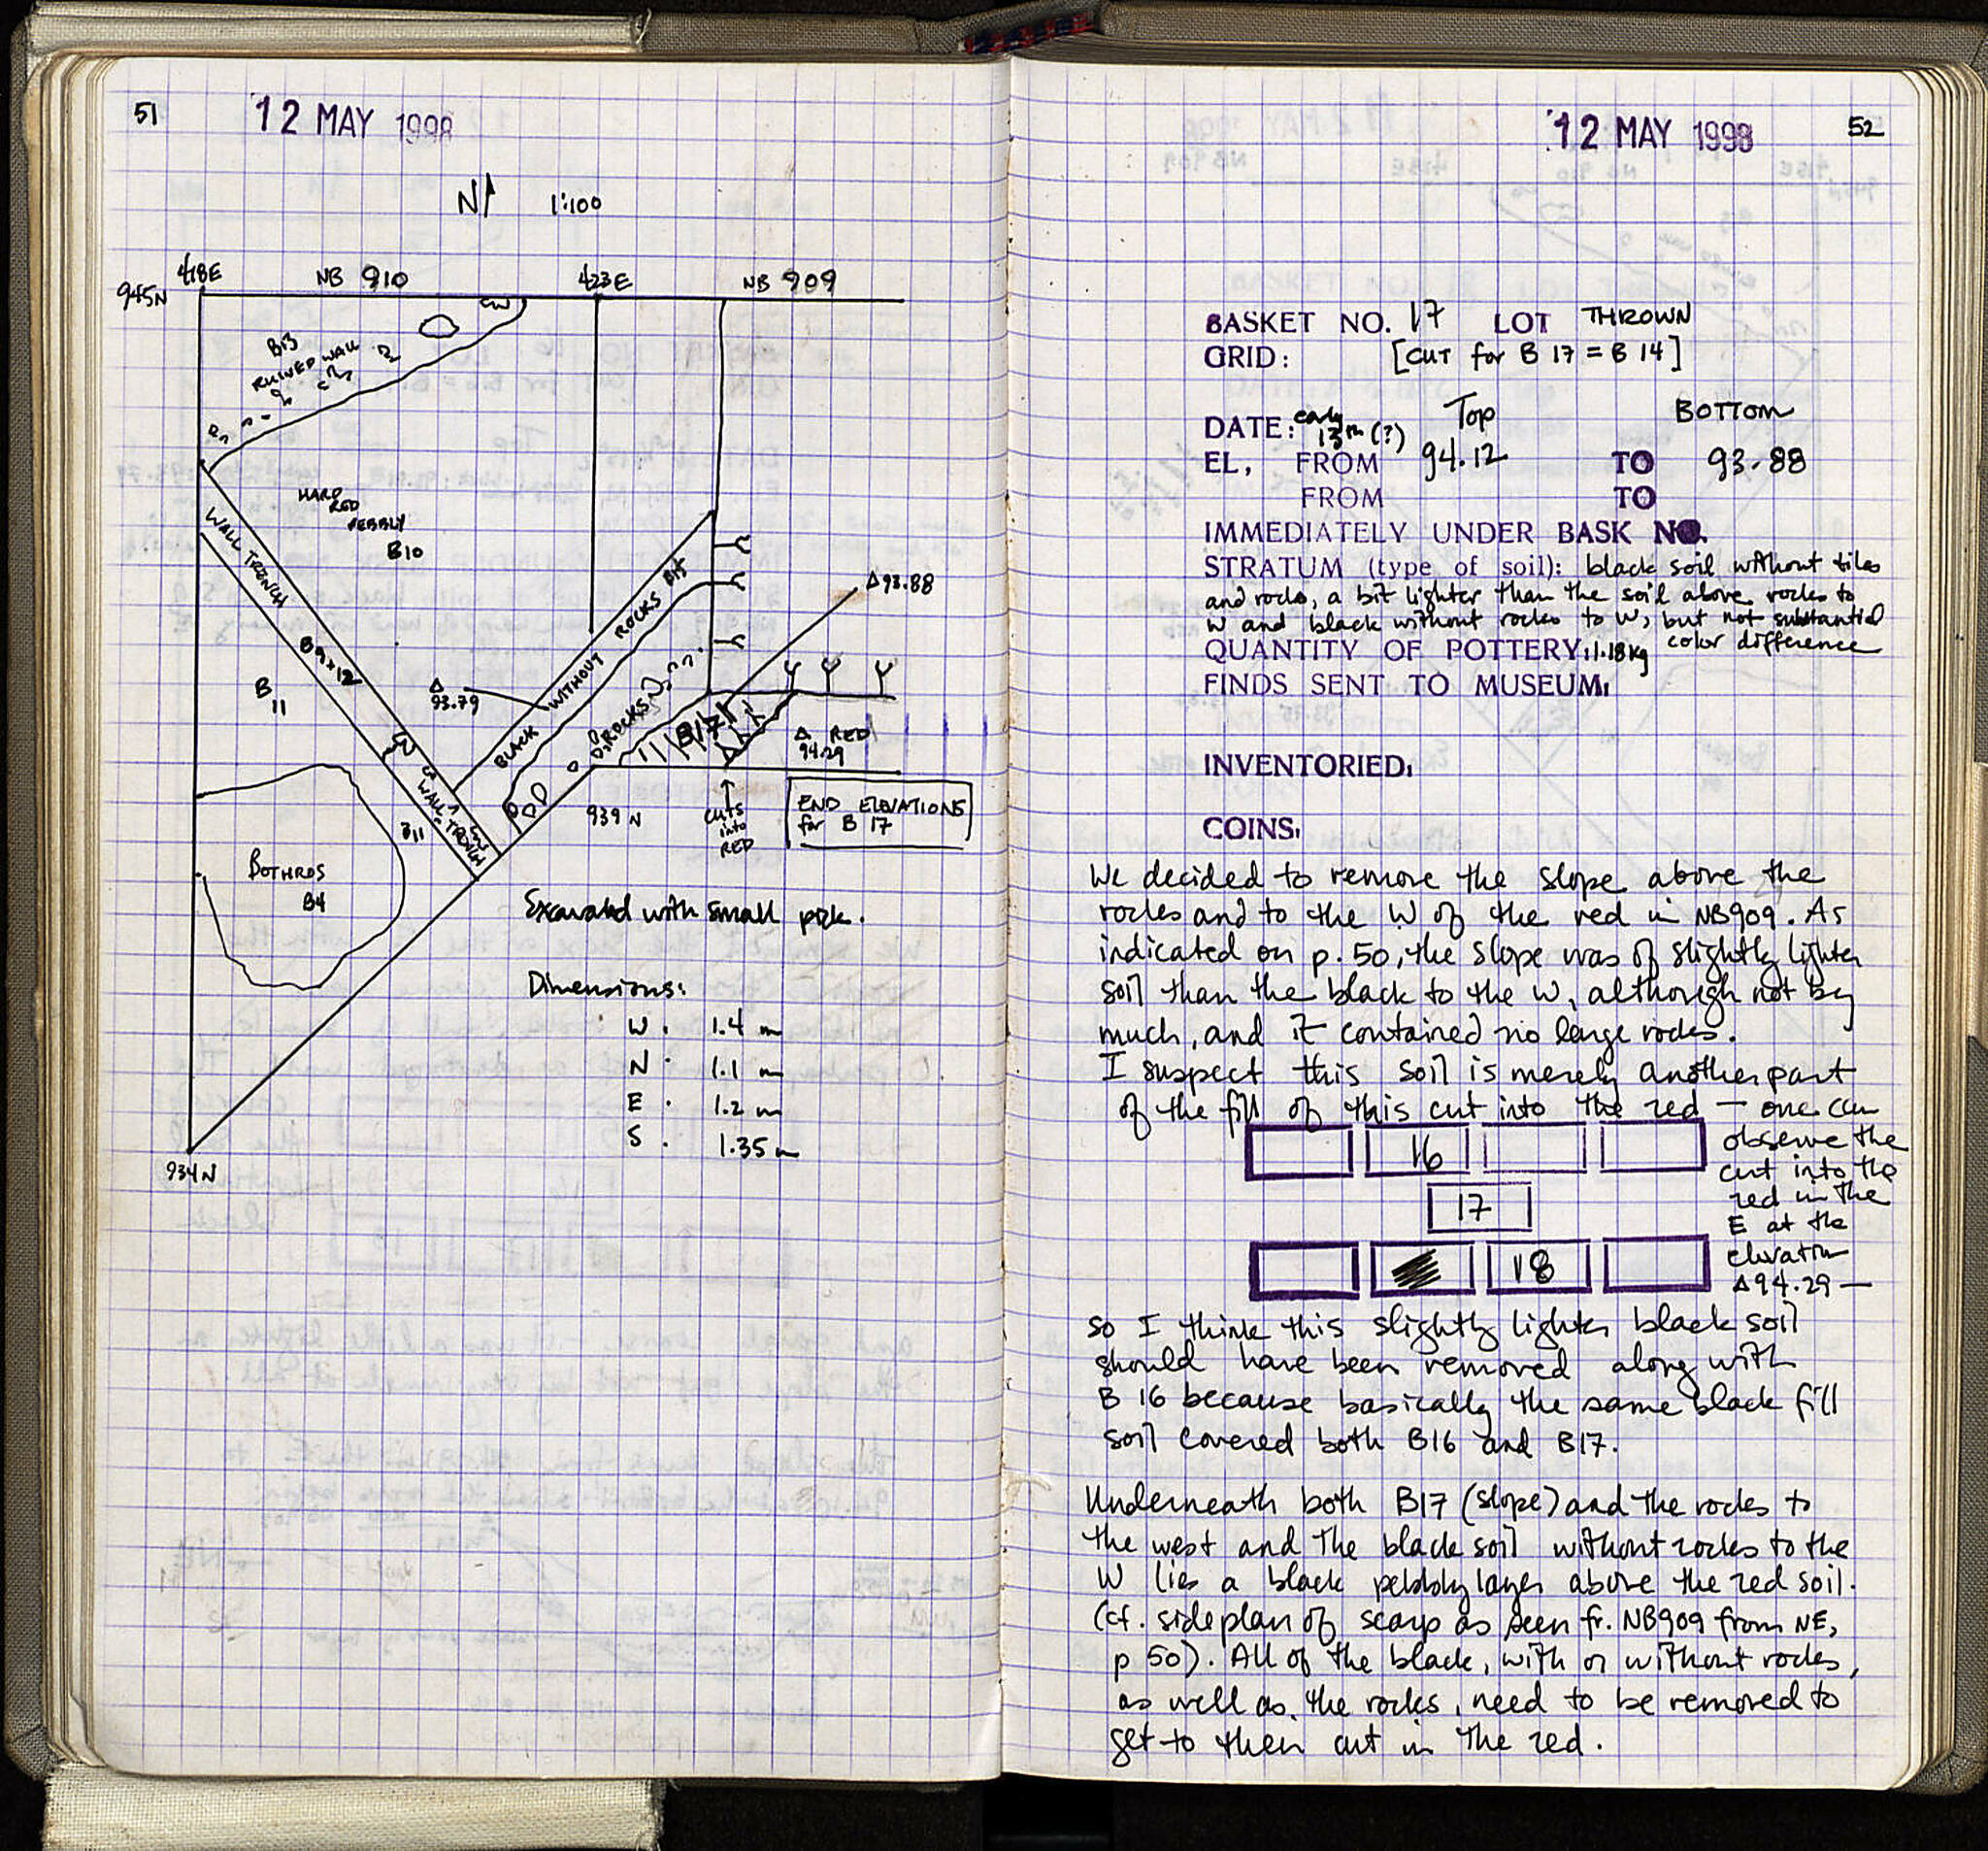 51
12 MAY 1998
N 1:100
418E NB 910 423E NB 909
945N
B13
RUINED WALL
HARD
RED
PEBBLY
B10
WALL TRENCH
B9+12
B
11
B15
WITHOUT ROCKS
BLACK
Δ
93.79
ROCKS
B17
Δ93.88
Δ RED
94.29
WALL TRENCH
B11
939 N
CUTS
into
RED
END ELEVATIONS
for B 17
BOTHROS
B4
934N
Excavated with small pick.
Dimensions:
W. 1.4 m
N. 1.1 m
E. 1.2 m
S. 1.35 m
12 MAY 1998
52
BASKET NO. 17 LOT THROWN
GRID: [CUT for B 17 = B 14]
DATE: early 13th (?) Top BOTTOM
EL, FROM 94.12 TO 93.88
FROM TO
IMMEDIATELY UNDER BASK NO.
STRATUM (type of soil): black soil without tiles
and rocks, a bit lighter than the soil above rocks to
W and black without rocks to W, but not substantial
color difference
QUANTITY OF POTTERY: 1.18kg
FINDS SENT TO MUSEUM:
INVENTORIED:
COINS:
We decided to remove the slope above the
rocks and to the W of the red in NB909. As
indicated on p. 50, the slope was of slightly lighter
soil than the black to the W, although not by
much, and it contained no large rocks.
I suspect this soil is merely another part
of the fill of this cut into the red — one can
observe the
cut into the
red in the
E at the
elevation
Δ94.29 —
16
17
18
so I think this slightly lighter black soil
should have been removed along with
B 16 because basically the same black fill
soil covered both B16 and B17.
Underneath both B17 (slope) and the rocks to
the west and the black soil without rocks to the
W lies a black pebbly layer above the red soil.
(cf. side plan of scarp as seen fr. NB909 from NE,
p 50). All of the black, with or without rocks,
as well as the rocks, need to be removed to
get to then cut in the red.